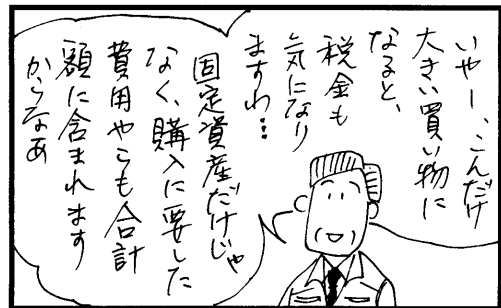 いやー、こんだけ
大きい買い物に
なると、
税金も
気になり
ますわ…
固定資産だけじゃ
なく、購入に要した
費用やらも合計
額に含まれます
からなぁ